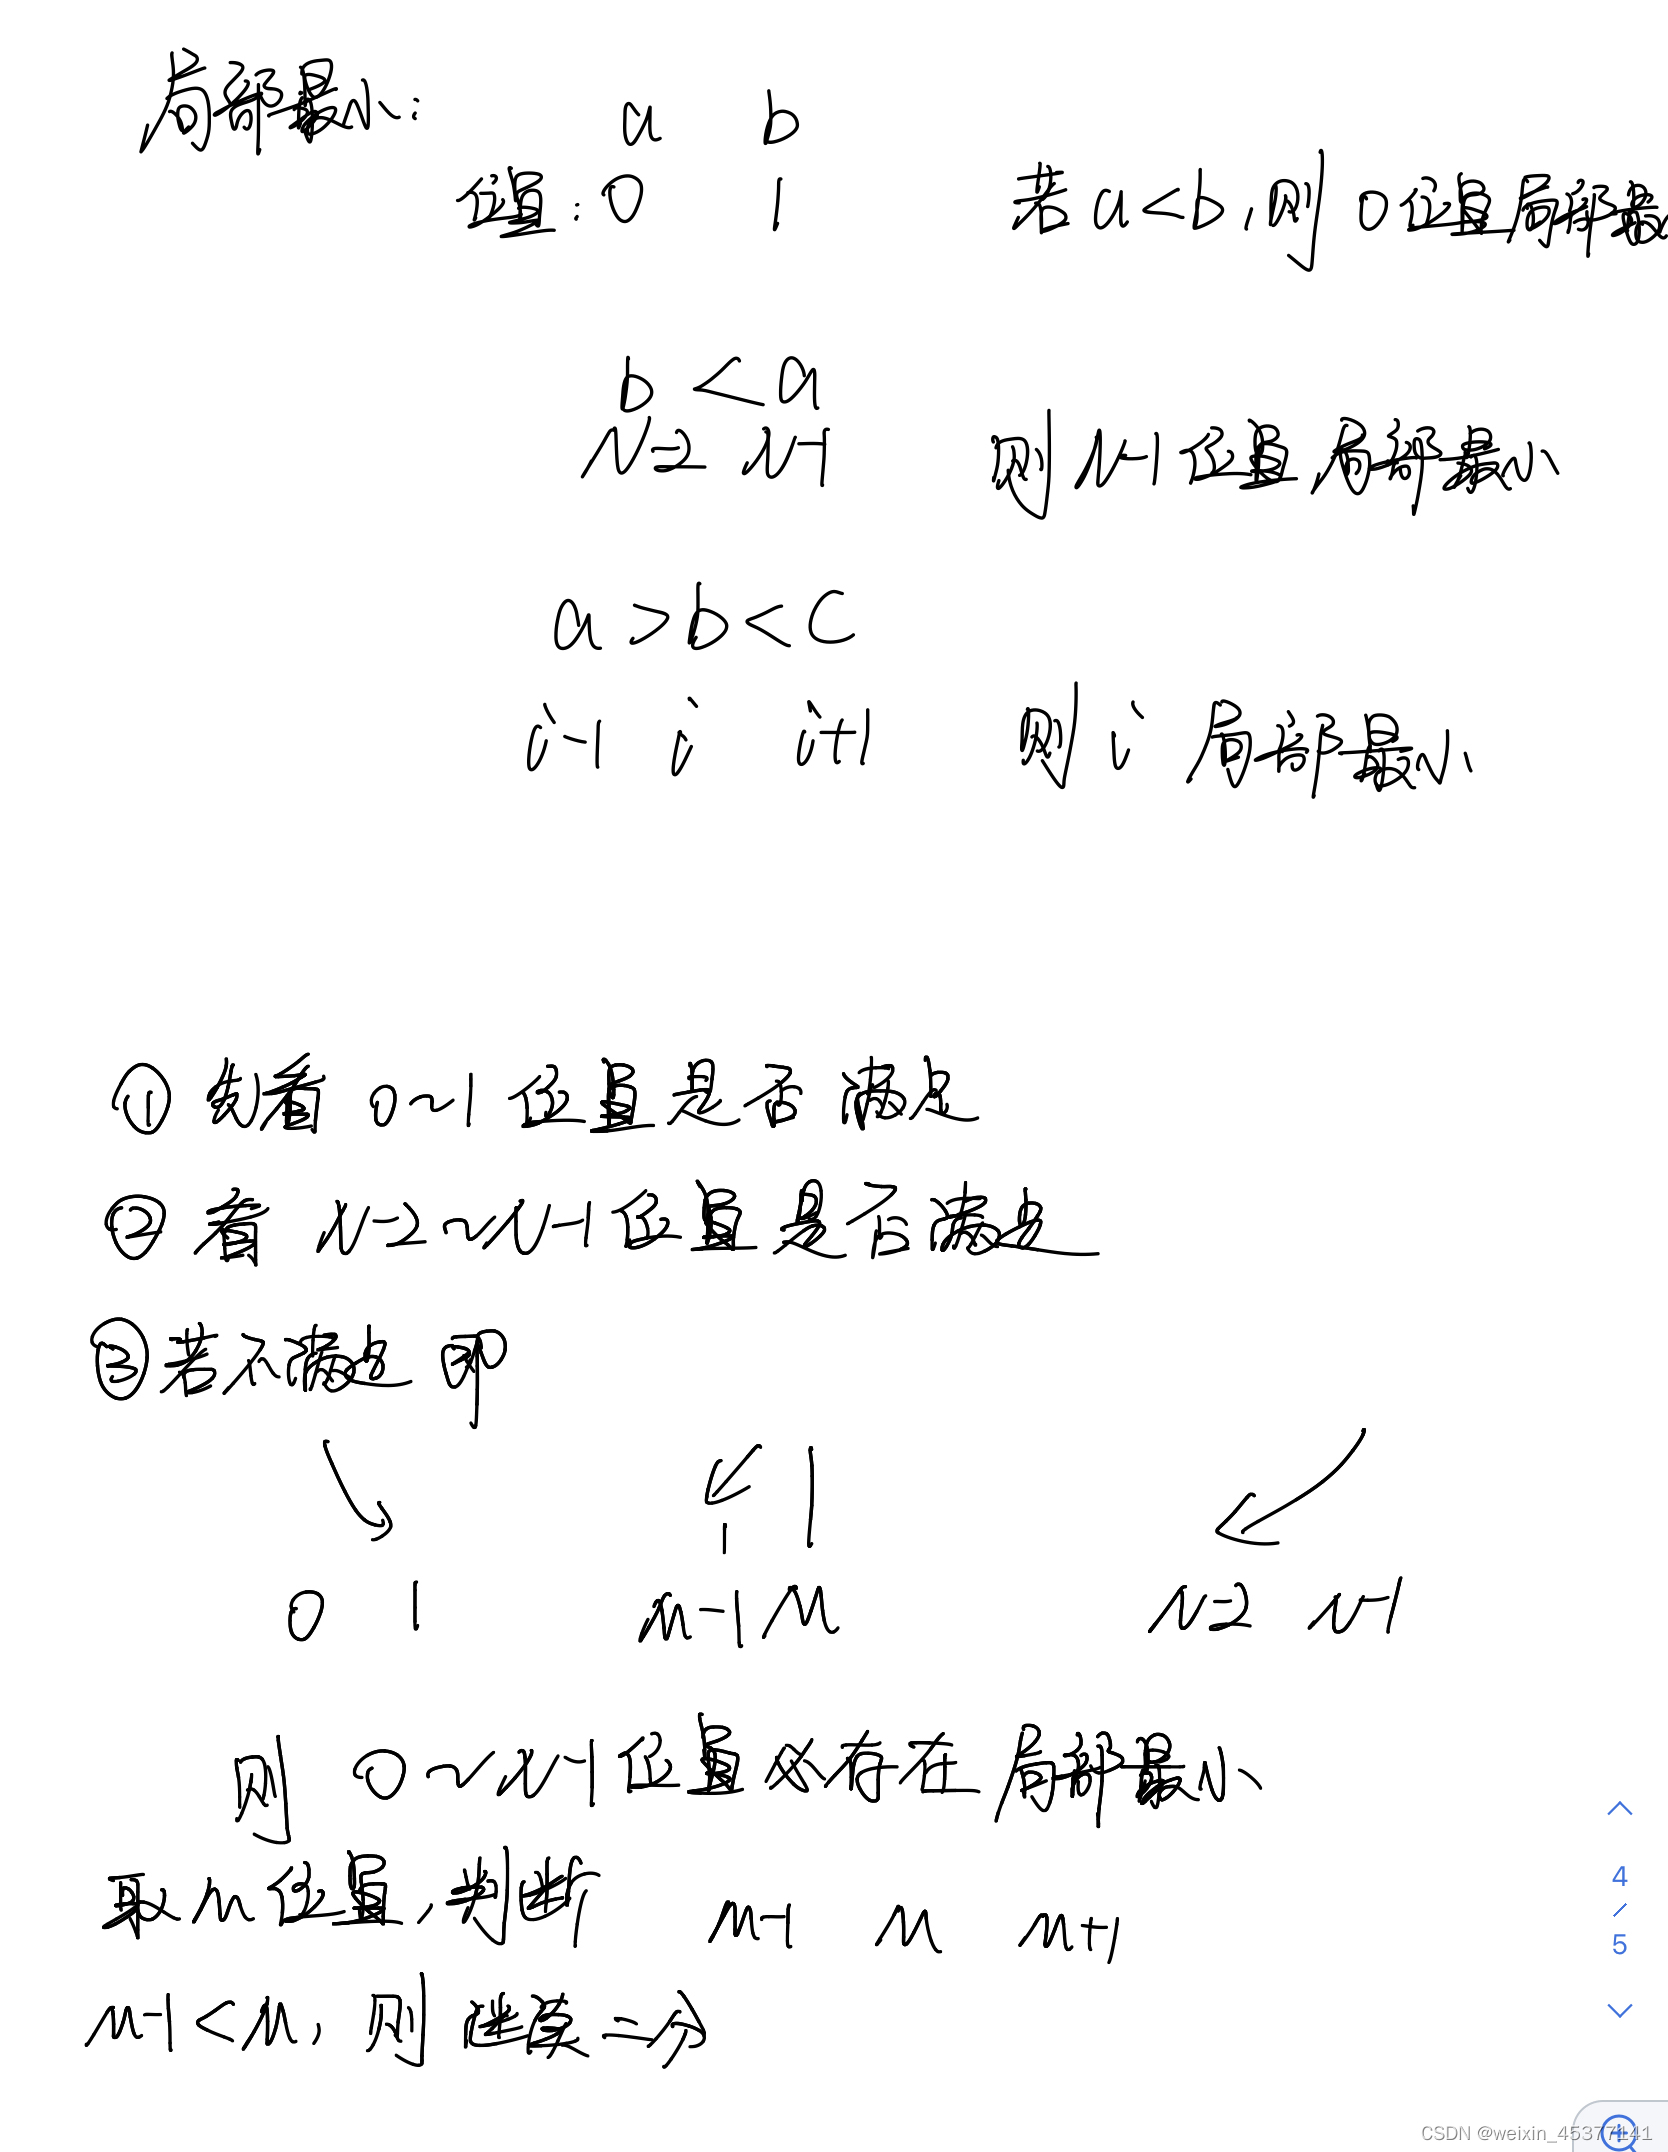 局部最小:
a b
位置:0 1 若a<b,则0位置局部最
b<a
N-2 N-1 则N-1位置局部最小
a>b<c
i-1 i i+1 则i局部最小
①先看0~1位置是否满足
②看N-2~N-1位置是否满足
③若不满足 即
0 1 M-1 M N-2 N-1
则0~N-1位置必存在局部最小
取M位置,判断 M-1 M M+1
M-1<M,则继续二分
4
/
5
CSDN @weixin_45377141